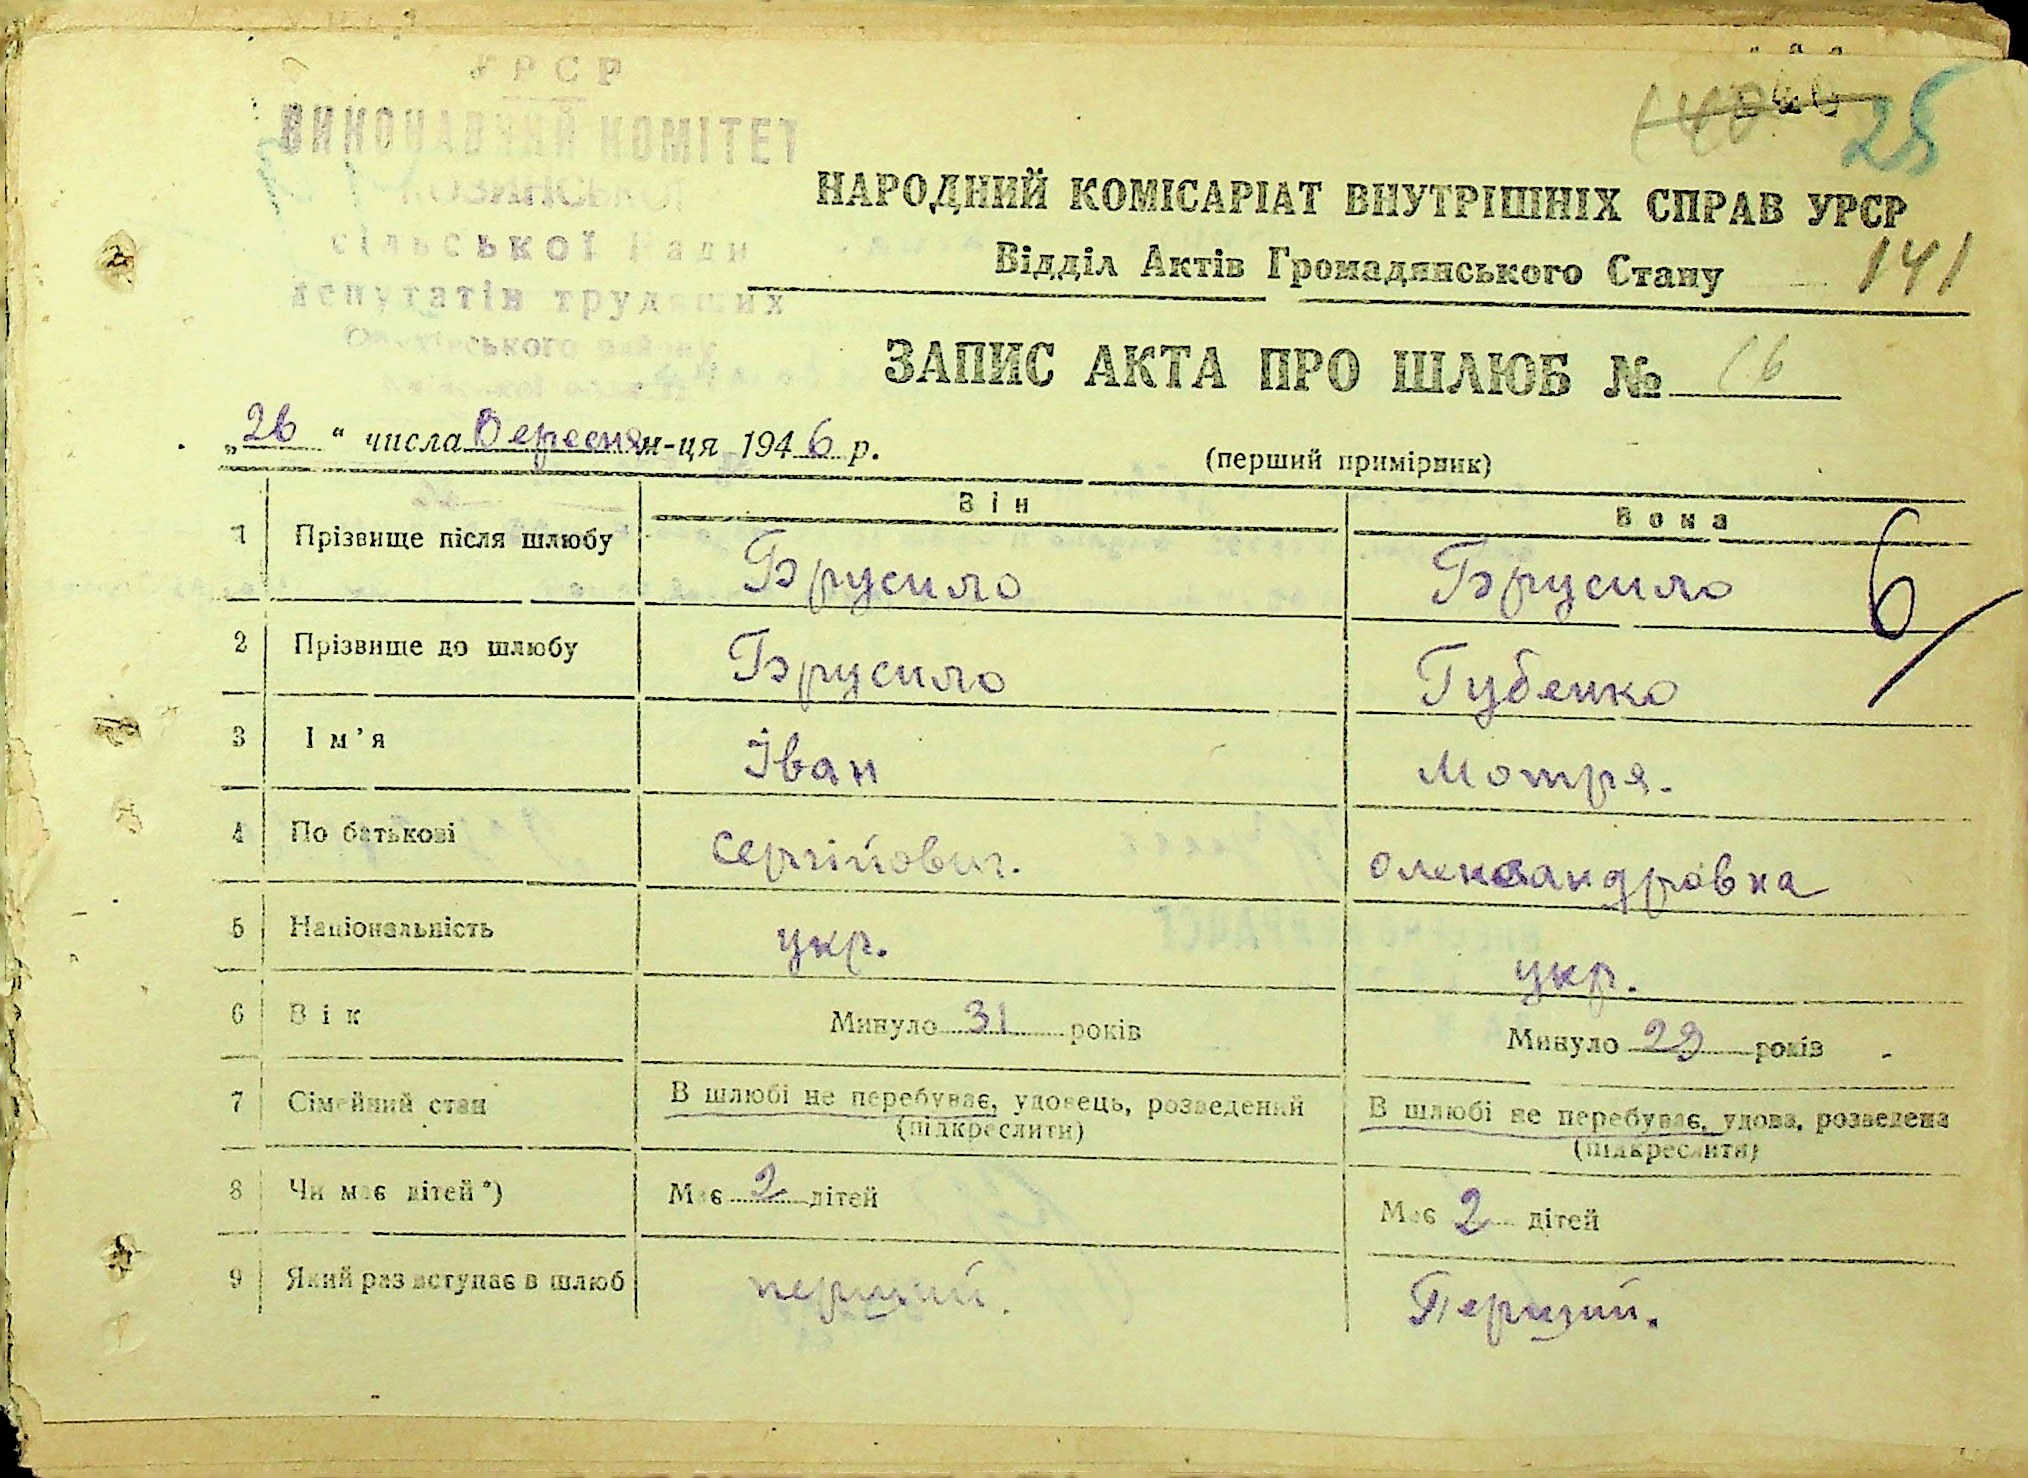 УРСР
ВИКОНАВЧИЙ КОМІТЕТ
сільської Ради
депутатів трудящих
140 25
НАРОДНИЙ КОМІСАРІАТ ВНУТРІШНІХ СПРАВ УРСР
Відділ Актів Громадянського Стану 141
ЗАПИС АКТА ПРО ШЛЮБ № 16
„26“ числа Вересня м-ця 1946 р.
(перший примірник)
Він Вона
1 Прізвище після шлюбу Брусило Брусило
6
2 Прізвище до шлюбу Брусило Губенко
3 Ім'я Іван Мотря.
4 По батькові Сергійович. Олександровна
5 Національність укр. укр.
6 Вік Минуло 31 років Минуло 29 років
7 Сімейний стан В шлюбі не перебуває, удовець, розведений В шлюбі не перебуває, удова, розведена
(підкреслити) (підкреслити)
8 Чи має дітей*) Має 2 дітей Має 2 дітей
9 Який раз вступає в шлюб перший. Перший.